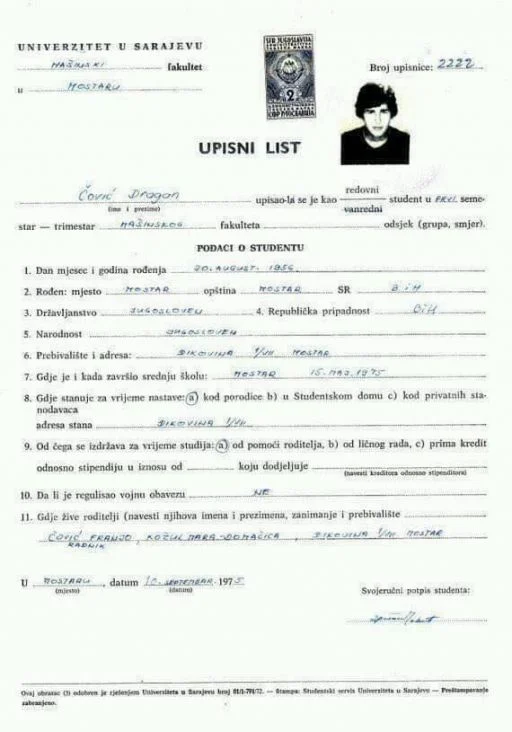 UNIVERZITET U SARAJEVU
MAŠINSKI fakultet
u MOSTARU
SFR JUGOSLAVIJA
2
Broj upisnice: 2222
UPISNI LIST
Čović Dragan upisao-la se je kao redovni vanredni student u PRVI seme-
(ime i prezime)
star — trimestar MAŠINSKOG fakulteta odsjek (grupa, smjer).
PODACI O STUDENTU
1. Dan mjesec i godina rođenja 20. AUGUST. 1956
2. Rođen: mjesto MOSTAR opština MOSTAR SR BiH
3. Državljanstvo JUGOSLOVEN 4. Republička pripadnost BiH
5. Narodnost JUGOSLOVEN
6. Prebivalište i adresa: ĐIKOVINA 1/VII MOSTAR
7. Gdje je i kada završio srednju školu: MOSTAR 15. MAJ. 1975
8. Gdje stanuje za vrijeme nastave: a) kod porodice b) u Studentskom domu c) kod privatnih sta-
nodavaca
adresa stana ĐIKOVINA 1/VII
9. Od čega se izdržava za vrijeme studija: a) od pomoći roditelja, b) od ličnog rada, c) prima kredit
odnosno stipendiju u iznosu od koju dodjeljuje
(navesti kreditora odnosno stipenditora)
10. Da li je regulisao vojnu obavezu NE
11. Gdje žive roditelji (navesti njihova imena i prezimena, zanimanje i prebivalište
ČOVIĆ FRANJO, KOŽUL MARA-DOMAĆICA, ĐIKOVINA 1/VII MOSTAR
RADNIK
U MOSTARU, datum 10. SEPTEMBAR 1975
(mjesto) (datum)
Svojeručni potpis studenta:
Ovaj obrazac (3) odobren je rješenjem Univerziteta u Sarajevu broj 01/1-791/72. — Štampa: Studentski servis Univerziteta u Sarajevu — Preštampavanje
zabranjeno.